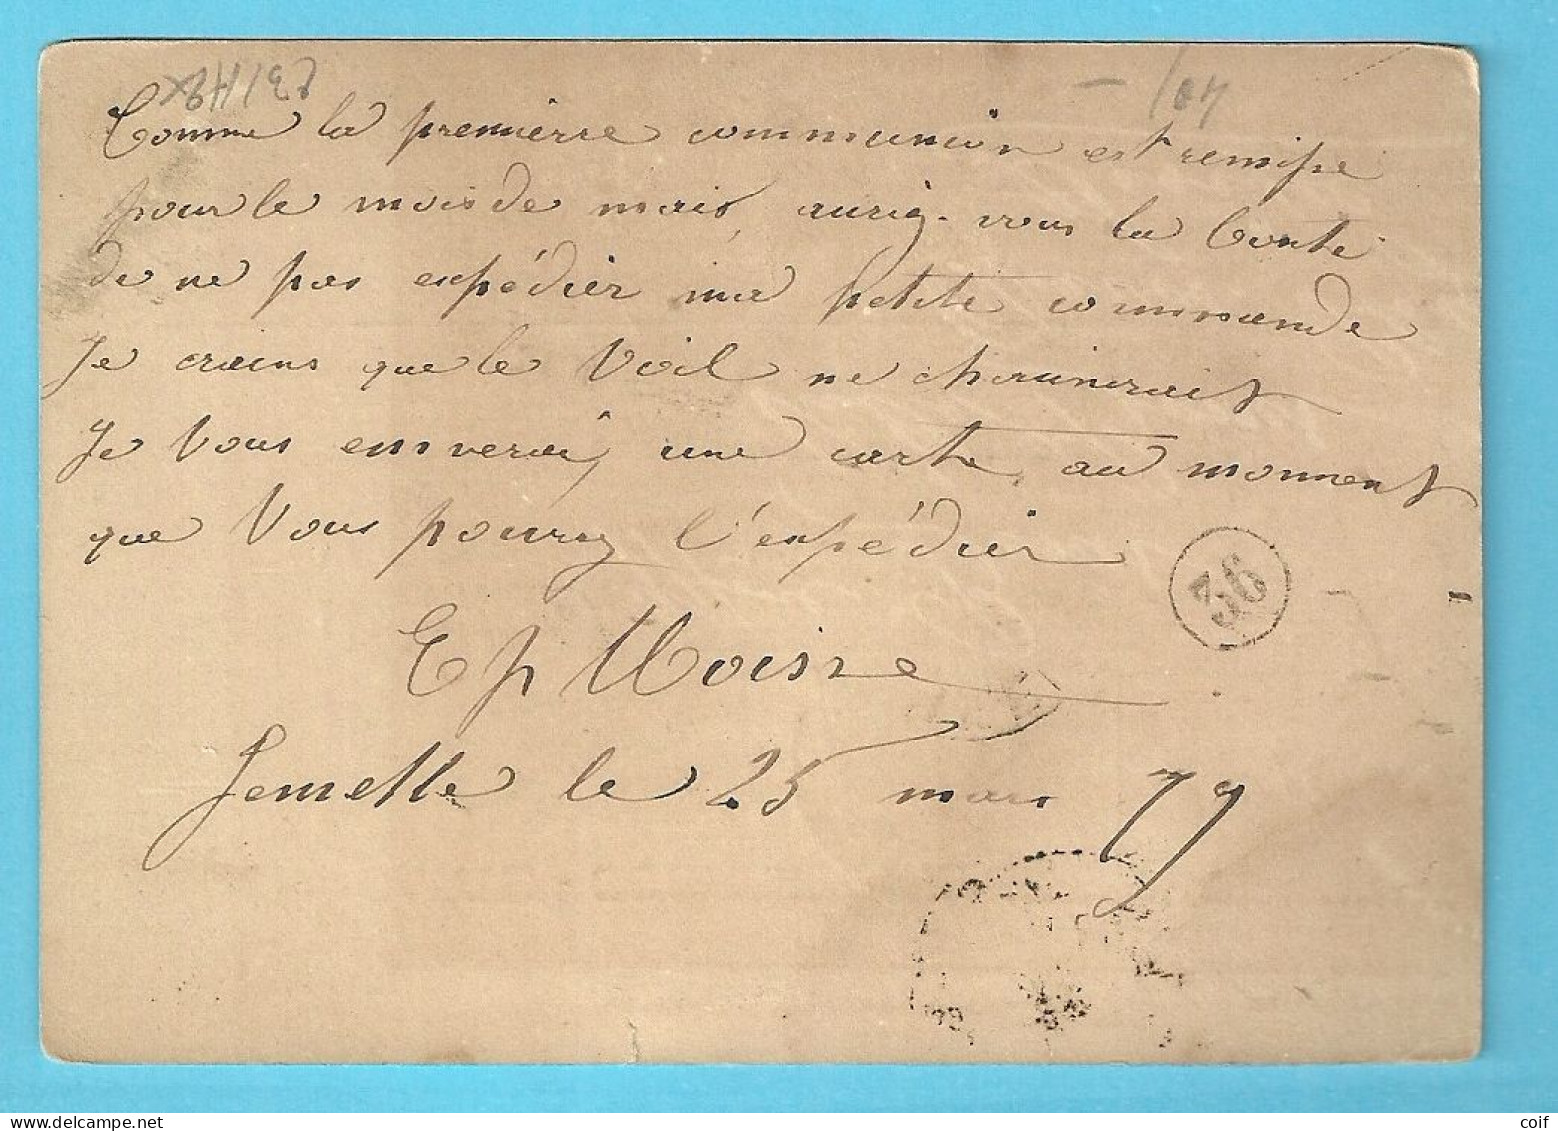 Comme la premierre communion est remise
pour le mois de mais, auriez-vous la bonté
de ne pas expédier ma petite commande
Je crains que le Voil ne chounerait
Je Vous enverai, une carte, au moment
que Vous pourez l'expédier
36
Ep Moisse
Jemelle le 25 mars 79
delcampe.net
coif